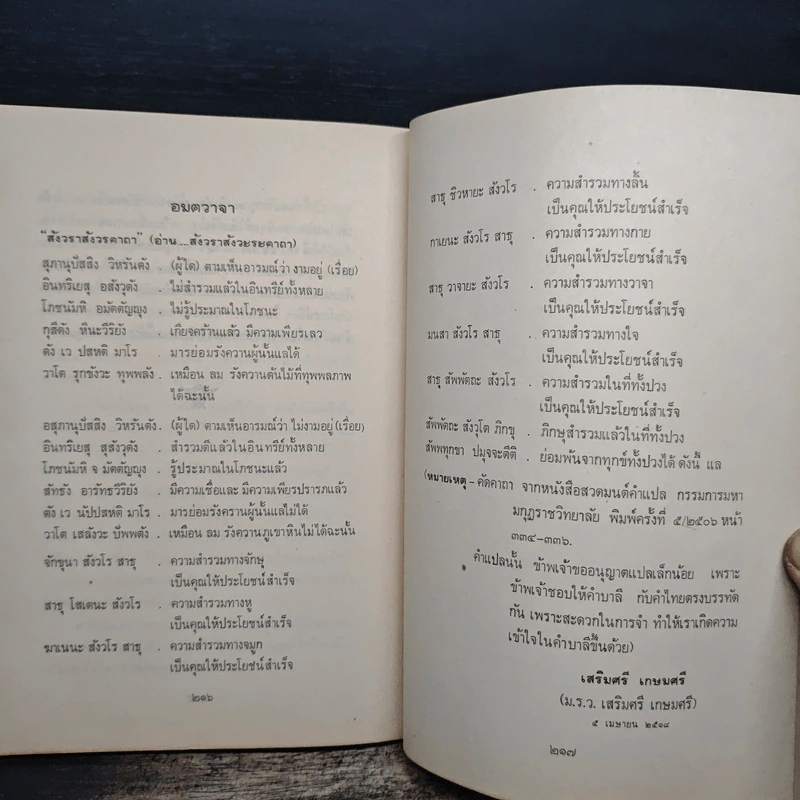 อมตวาจา
"สังวราสังวรคาถา" (อ่าน....สังวราสังวะระคาถา)
สุภานุปัสสิง วิหรันตัง . (ผู้ใด) ตามเห็นอารมณ์ว่า งามอยู่ (เรื่อย)
อินทริเยสุ อสังวุตัง . ไม่สำรวมแล้วในอินทรีย์ทั้งหลาย
โภชนัมหิ อมัตตัญญุง . ไม่รู้ประมาณในโภชนะ
กุสีตัง หีนะวีริยัง . เกียจคร้านแล้ว มีความเพียรเลว
ตัง เว ปสหติ มาโร . มารย่อมรังควานผู้นั้นแลได้
วาโต รุกขังวะ ทุพพลัง . เหมือน ลม รังความต้นไม้ที่ทุพพลภาพ
ได้ฉะนั้น
อสุภานุปัสสิง วิหรันตัง . (ผู้ใด) ตามเห็นอารมณ์ว่า ไม่งามอยู่ (เรื่อย)
อินทริเยสุ สุสังวุตัง . สำรวมดีแล้วในอินทรีย์ทั้งหลาย
โภชนัมหิ จ มัตตัญญุง . รู้ประมาณในโภชนะแล้ว
สัทธัง อารัทธวีริยัง . มีความเชื่อและ มีความเพียรปรารภแล้ว
ตัง เว นัปปสหติ มาโร . มารย่อมรังครานผู้นั้นแลไม่ได้
วาโต เสลังวะ ปัพพตัง . เหมือน ลม รังควานภูเขาหินไม่ได้ฉะนั้น
จักขุนา สังวโร สาธุ . ความสำรวมทางจักษุ
เป็นคุณให้ประโยชน์สำเร็จ
สาธุ โสเตนะ สังวโร . ความสำรวมทางหู
เป็นคุณให้ประโยชน์สำเร็จ
ฆาเนนะ สังวโร สาธุ . ความสำรวมทางจมูก
เป็นคุณให้ประโยชน์สำเร็จ
๒๑๖
สาธุ ชิวหายะ สังวโร . ความสำรวมทางลิ้น
เป็นคุณให้ประโยชน์สำเร็จ
กาเยนะ สังวโร สาธุ . ความสำรวมทางกาย
เป็นคุณให้ประโยชน์สำเร็จ
สาธุ วาจายะ สังวโร . ความสำรวมทางวาจา
เป็นคุณให้ประโยชน์สำเร็จ
มนสา สังวโร สาธุ . ความสำรวมทางใจ
เป็นคุณให้ประโยชน์สำเร็จ
สาธุ สัพพัตถะ สังวโร . ความสำรวมในที่ทั้งปวง
เป็นคุณให้ประโยชน์สำเร็จ
สัพพัตถะ สังวุโต ภิกขุ . ภิกษุสำรวมแล้วในที่ทั้งปวง
สัพพทุกขา ปมุจจะตีติ . ย่อมพ้นจากทุกข์ทั้งปวงได้ ดังนี้ แล
(หมายเหตุ – คัดคาถา จากหนังสือสวดมนต์คำแปล กรรมการมหา
มกุฏราชวิทยาลัย พิมพ์ครั้งที่ ๕/๒๕๐๖ หน้า
๓๓๔–๓๓๖.
คำแปลนั้น ข้าพเจ้าขออนุญาตแปลเล็กน้อย เพราะ
ข้าพเจ้าชอบให้คำบาลี กับคำไทยตรงบรรทัด
กัน เพราะสะดวกในการจำ ทำให้เราเกิดความ
เข้าใจในคำบาลีขึ้นด้วย)
เสริมศรี เกษมศรี
(ม.ร.ว. เสริมศรี เกษมศรี)
๕ เมษายน ๒๕๑๘
๒๑๗